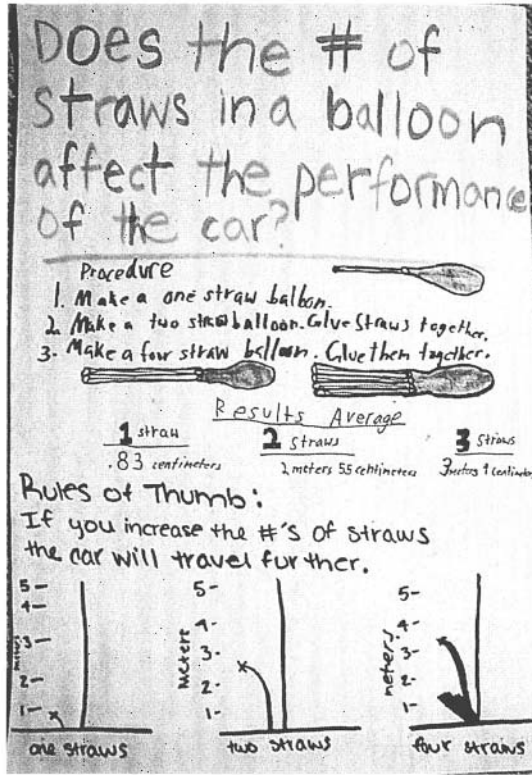 Does the # of
straws in a balloon
affect the performance
of the car?
Procedure
1. Make a one straw balloon.
2. Make a two straw balloon. Glue straws together.
3. Make a four straw balloon. Glue them together.
Results Average
1 straw
2 straws
3 straws
.83 centimeters
2 meters 55 centimeters
3 meters 9 centimeters
Rules of Thumb:
If you increase the #'s of straws
the car will travel further.
5
4
meters
3
2
1
one straws
5
4
Meters
3
2
1
two straws
5
4
meters
3
2
1
four strains